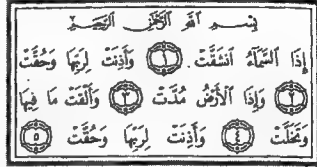 بِسْمِ ٱللَّهِ ٱلرَّحْمَٰنِ ٱلرَّحِيمِ
إِذَا ٱلسَّمَآءُ ٱنشَقَّتْ. ١ وَأَذِنَتْ لِرَبِّهَا وَحُقَّتْ
٢ وَإِذَا ٱلْأَرْضُ مُدَّتْ ٣ وَأَلْقَتْ مَا فِيهَا
وَتَخَلَّتْ ٤ وَأَذِنَتْ لِرَبِّهَا وَحُقَّتْ ٥